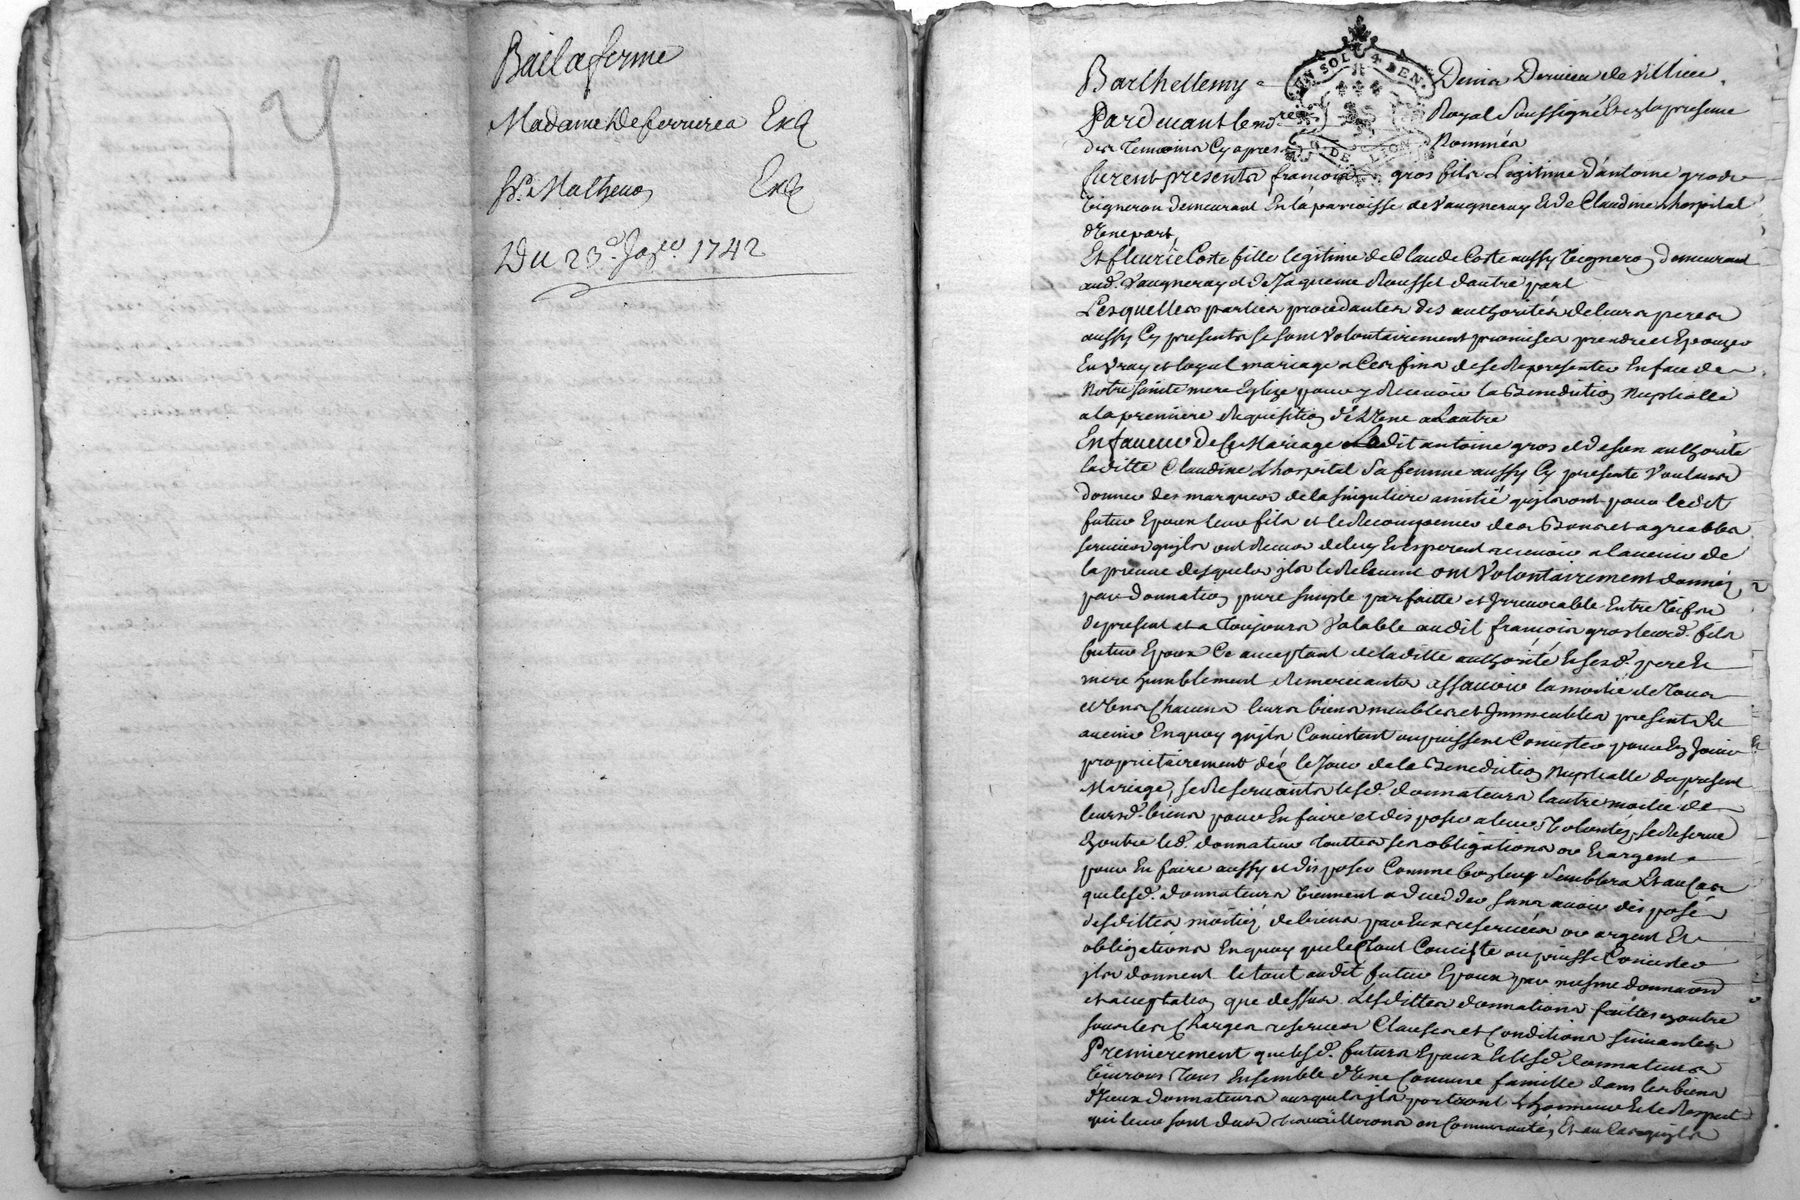 Bail a ferme
Madame De ferrieres Exp
Sr. Mathieu Exp
Du 23e. Jan 1742
UN SOL 4 DEN
DE LYON
Barthellemy Denis Dervieu de Villieu
Pardevant le nore Royal Soussigné Et en la presence
des Temoins Cy apres Nommés
furent presents françois gros fils Legitime d'antoine gros
vigneron demeurant En la parroisse de Vaugneray Et de Claudine Lhospital
d'Une part,
Et fleurie Coste fille legitime de Claude Coste aussy vigneron demeurant
aud. Vaugneray et de Jaqueme Rousset dautre part
Lesquelles parties procedantes des authorités de leurs peres
aussy Cy presents se sont Volontairement promises prendre et Epouzer
En vray et loyal mariage a Ces fins de se Representer En face de
Notre sainte mere Eglize pour y Recevoir la Benediction Nuptialle
a la premiere Requisition de L'Une a Lautre
En faveur de Ce Mariage Ledit antoine gros et de son authorité
laditte Claudine Lhospital Sa femme aussy Cy presente Voulants
donner des marques de la singuliere amitié quils ont pour ledit
futur Epoux leur fils et le Recompenser des Bons et agreables
services quils ont Receus de luy Et Esperent recevoir a lavenir de
la preuve desquels ils le Relevent ont Volontairement donnés
par donnation pure simple parfaitte et Irrevocable Entre vifs
de present et a Toujours Valable audit françois gros leurd. fils
futur Epoux Ce acceptant de laditte authorité Et sesd. pere Et
mere humblement Remerciants assavoir la moitié de Tous
et Uns Chacuns leurs biens meubles et Immeubles presents Et
avenir En quoy quils Consistent ou puissent Consister pour En Jouir
propriétairement dés le Jour de la Benediction Nuptialle du present
Mariage, se Reservants lesd. donnateurs lautre moitié de
leursd. biens pour En faire et disposer a leurs Volontés, se Reserve
En outre led. donnateur Touttes ses obligations ou Et argent
pour En faire aussy et disposer Comme bon leur Semblera Et au Cas
que lesd. donnateurs viennent a deceder sans avoir disposé
desdittes moitiés de biens par Eux reservées ou argent Et
obligations En quoy que le Tout Consiste ou puisse Consister
ils donnent le tout audit futur Epoux par mesme donnaon
et acceptation que dessus Lesdittes donnations faittes En outre
sous les Charges reserves Clauses et Conditions suivantes
Premierement que lesd. futurs Epoux Et lesd. donnateurs
vivrons Tous Ensemble d'Une Comune famille dans les biens
d'Iceux donnateurs ausquels ils porteront L'honneur Et le Respect
qui leur sont dues travaillerons en Communauté, Et au Cas quils